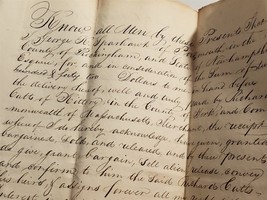 Know all Men by these Presents That
I George H. Sparhawk of
County of Rockingham, and State
Esquire, for and in consideration of the Sum of
hundred & forty Dollars to me in hand before
the delivery hereof, well and truly paid by Richard
Cutts of Kittery in the County of York and Com-
monwealth of Massachusetts, Merchant, the receipt
whereof I do hereby acknowledge, have given, granted,
bargained, Sold, and released and by these presents
do give, grant, bargain, sell, alien, release, convey
and confirm to him the Said Richard Cutts
his heirs & assigns forever all